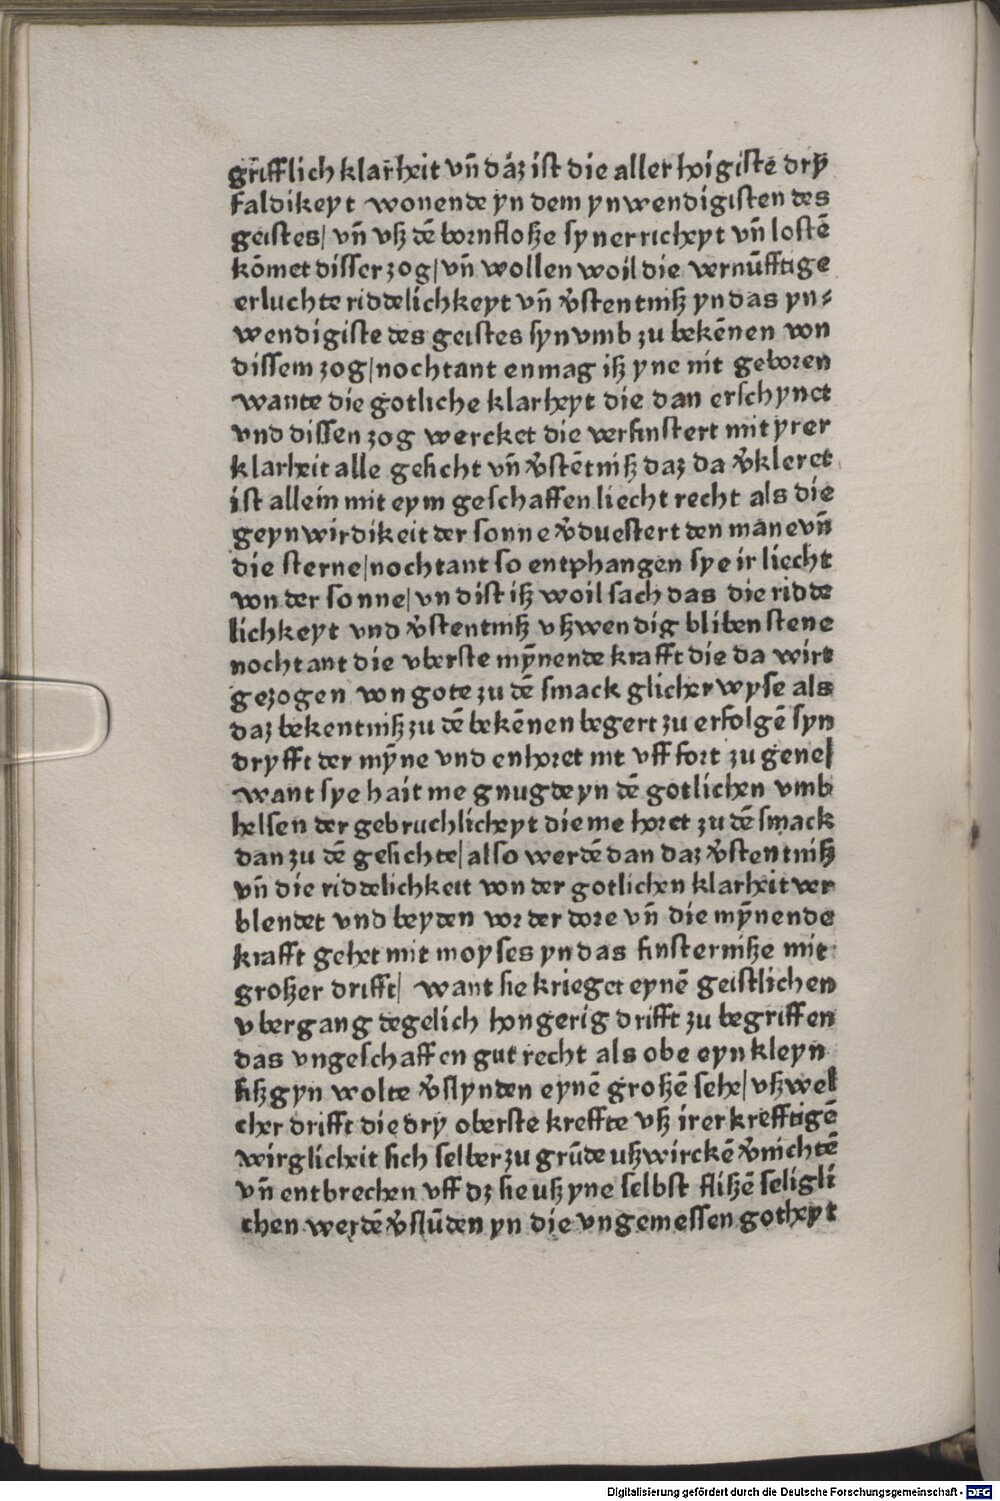 grifflich klarheit vn̄ daz ist die aller hoigistē dry
faldikeyt wonende yn dem ynwendigisten des
geistes/ vn̄ vß dē bornfloße syner richeyt vn̄ lostē
kōmet disser zog/ vn̄ wollen woil die vernūfftige
erluchte riddelichkeyt vn̄ v̄stentniß yn das yn⸗
wendigiste des geistes syn vmb zu bekēnen von
dissem zog/ nochtant enmag iß yne nit geboren
wante die gotliche klarheyt die dan erschynet
vnd dissen zog wercket die verfinstert mit yrer
klarheit alle gesicht vn̄ v̄stētniß daz da v̄kleret
ist allein mit eym geschaffen liecht recht als die
geynwirdikeit der sonne v̄duestert den mane vn̄
die sterne/ nochtant so entphangen sye ir liecht
von der sonne/ vn dist iß woil sach das die ridde
lichkeyt vnd v̄stentniß vßwendig bliben stene
nochtant die vberste mȳnende krafft die da wirt
gezogen von gote zu dē smack glicher wyse als
daz bekentniß zu dē bekēnen begert zu erfolgē syn
dryfft der mȳne vnd enhoret nit vff fort zu gene/
want sye hait me gnugde yn dē gotlichen vmb
helsen der gebruchlicheyt die me horet zu dē smack
dan zu dē gesichte/ also werdē dan daz v̄stentniß
vn̄ die riddelichkeit von der gotlichen klarheit ver
blendet vnd beyden vor der dore vn̄ die mȳnende
krafft gehet mit moyses yn das finsterniße mit
großer drifft/ want sie krieget eynē geistlichen
vbergang degelich hongerig drifft zu begriffen
das vngeschaffen gut recht als obe eyn kleyn
fißgyn wolte v̄slynden eynē großē sehe/ vß wel
cher drifft die dry oberste kreffte vß irer krefftigē
wirglicheit sich selber zu grūde ußwirckē v̄nichtē
vn̄ entbrechen vff dz sie uß yne selbst flißē seligli
chen werdē v̄slūden yn die vngemessen gotheyt
Digitalisierung gefördert durch die Deutsche Forschungsgemeinschaft - DFG